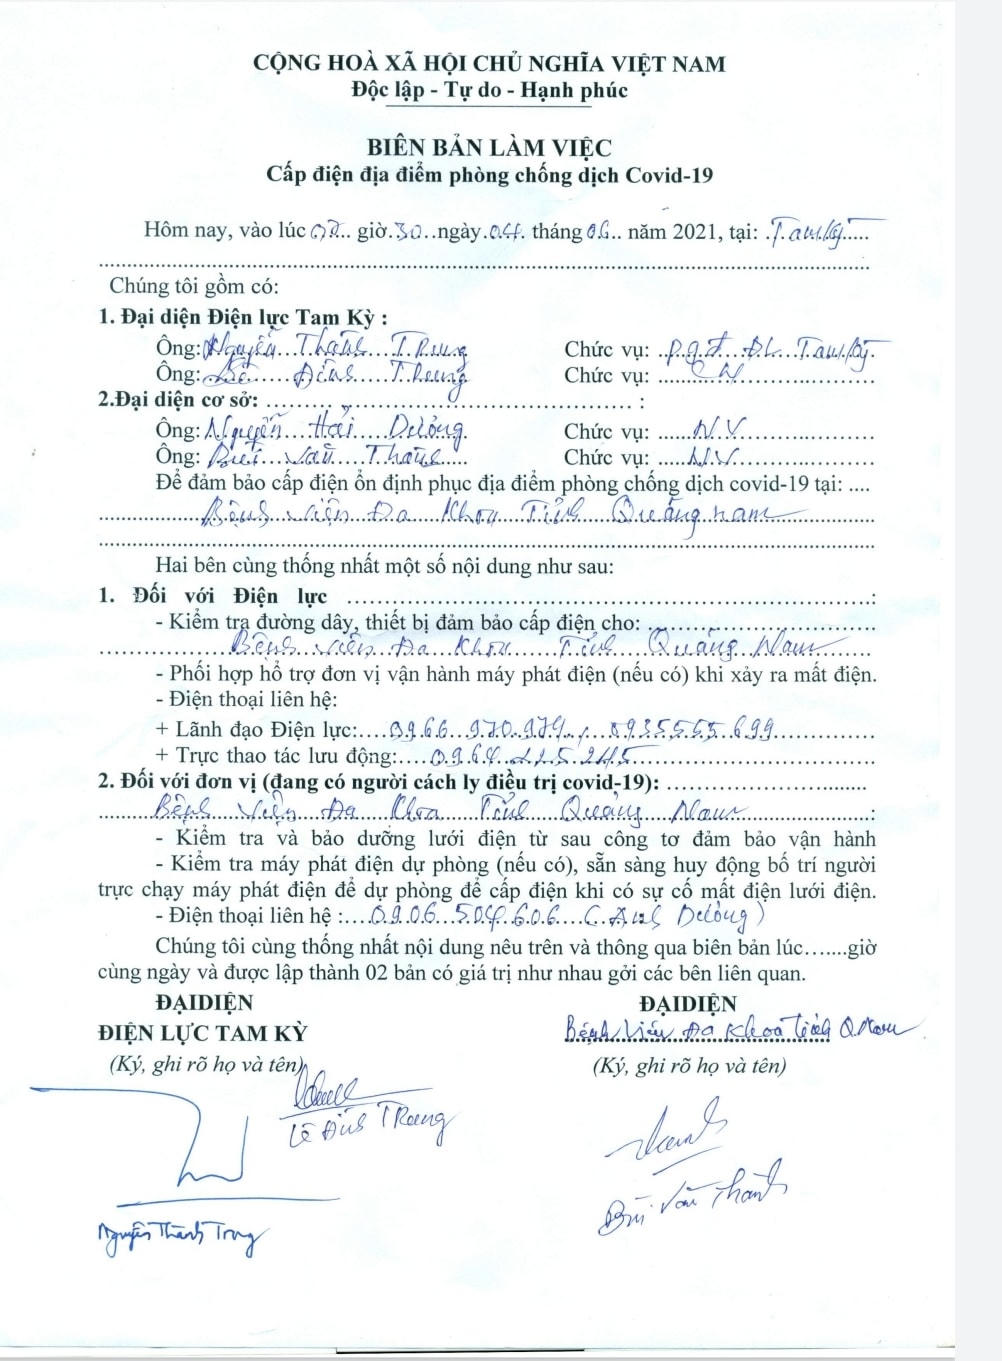 CỘNG HOÀ XÃ HỘI CHỦ NGHĨA VIỆT NAM
Độc lập - Tự do - Hạnh phúc
BIÊN BẢN LÀM VIỆC
Cấp điện địa điểm phòng chống dịch Covid-19
Hôm nay, vào lúc giờ.30..ngày.04. tháng 06.. năm 2021, tại: .Tam Kỳ.....
Chúng tôi gồm có:
1. Đại diện Điện lực Tam Kỳ :
Ông: Nguyễn Thành Trung Chức vụ: P.GĐ ĐL Tam Kỳ.
Ông: Lê Đình Trung Chức vụ: CN
2.Đại diện cơ sở: :
Ông: Nguyễn Hải Dương Chức vụ: NV
Ông: Bùi Văn Thành Chức vụ: NV
Để đảm bảo cấp điện ổn định phục địa điểm phòng chống dịch covid-19 tại: ....
Bệnh viện Đa Khoa Tỉnh Quảng nam
Hai bên cùng thống nhất một số nội dung như sau:
1. Đối với Điện lực :
- Kiểm tra đường dây, thiết bị đảm bảo cấp điện cho:
Bệnh viện Đa Khoa Tỉnh Quảng Nam
- Phối hợp hổ trợ đơn vị vận hành máy phát điện (nếu có) khi xảy ra mất điện.
- Điện thoại liên hệ:
+ Lãnh đạo Điện lực: 0966.970.979 , 0935555.699
+ Trực thao tác lưu động: 0964.225.245
2. Đối với đơn vị (đang có người cách ly điều trị covid-19):
Bệnh viện Đa Khoa Tỉnh Quảng Nam :
- Kiểm tra và bảo dưỡng lưới điện từ sau công tơ đảm bảo vận hành
- Kiểm tra máy phát điện dự phòng (nếu có), sẵn sàng huy động bố trí người
trực chạy máy phát điện để dự phòng để cấp điện khi có sự cố mất điện lưới điện.
- Điện thoại liên hệ : 0906.504.606 (Anh Dương)
Chúng tôi cùng thống nhất nội dung nêu trên và thông qua biên bản lúc.......giờ
cùng ngày và được lập thành 02 bản có giá trị như nhau gởi các bên liên quan.
ĐẠIDIỆN ĐẠIDIỆN
ĐIỆN LỰC TAM KỲ Bệnh Viện Đa Khoa tỉnh Q.Nam
(Ký, ghi rõ họ và tên) (Ký, ghi rõ họ và tên)
Lê Đình Trung
Bùi Văn Thành
Nguyễn Thành Trung